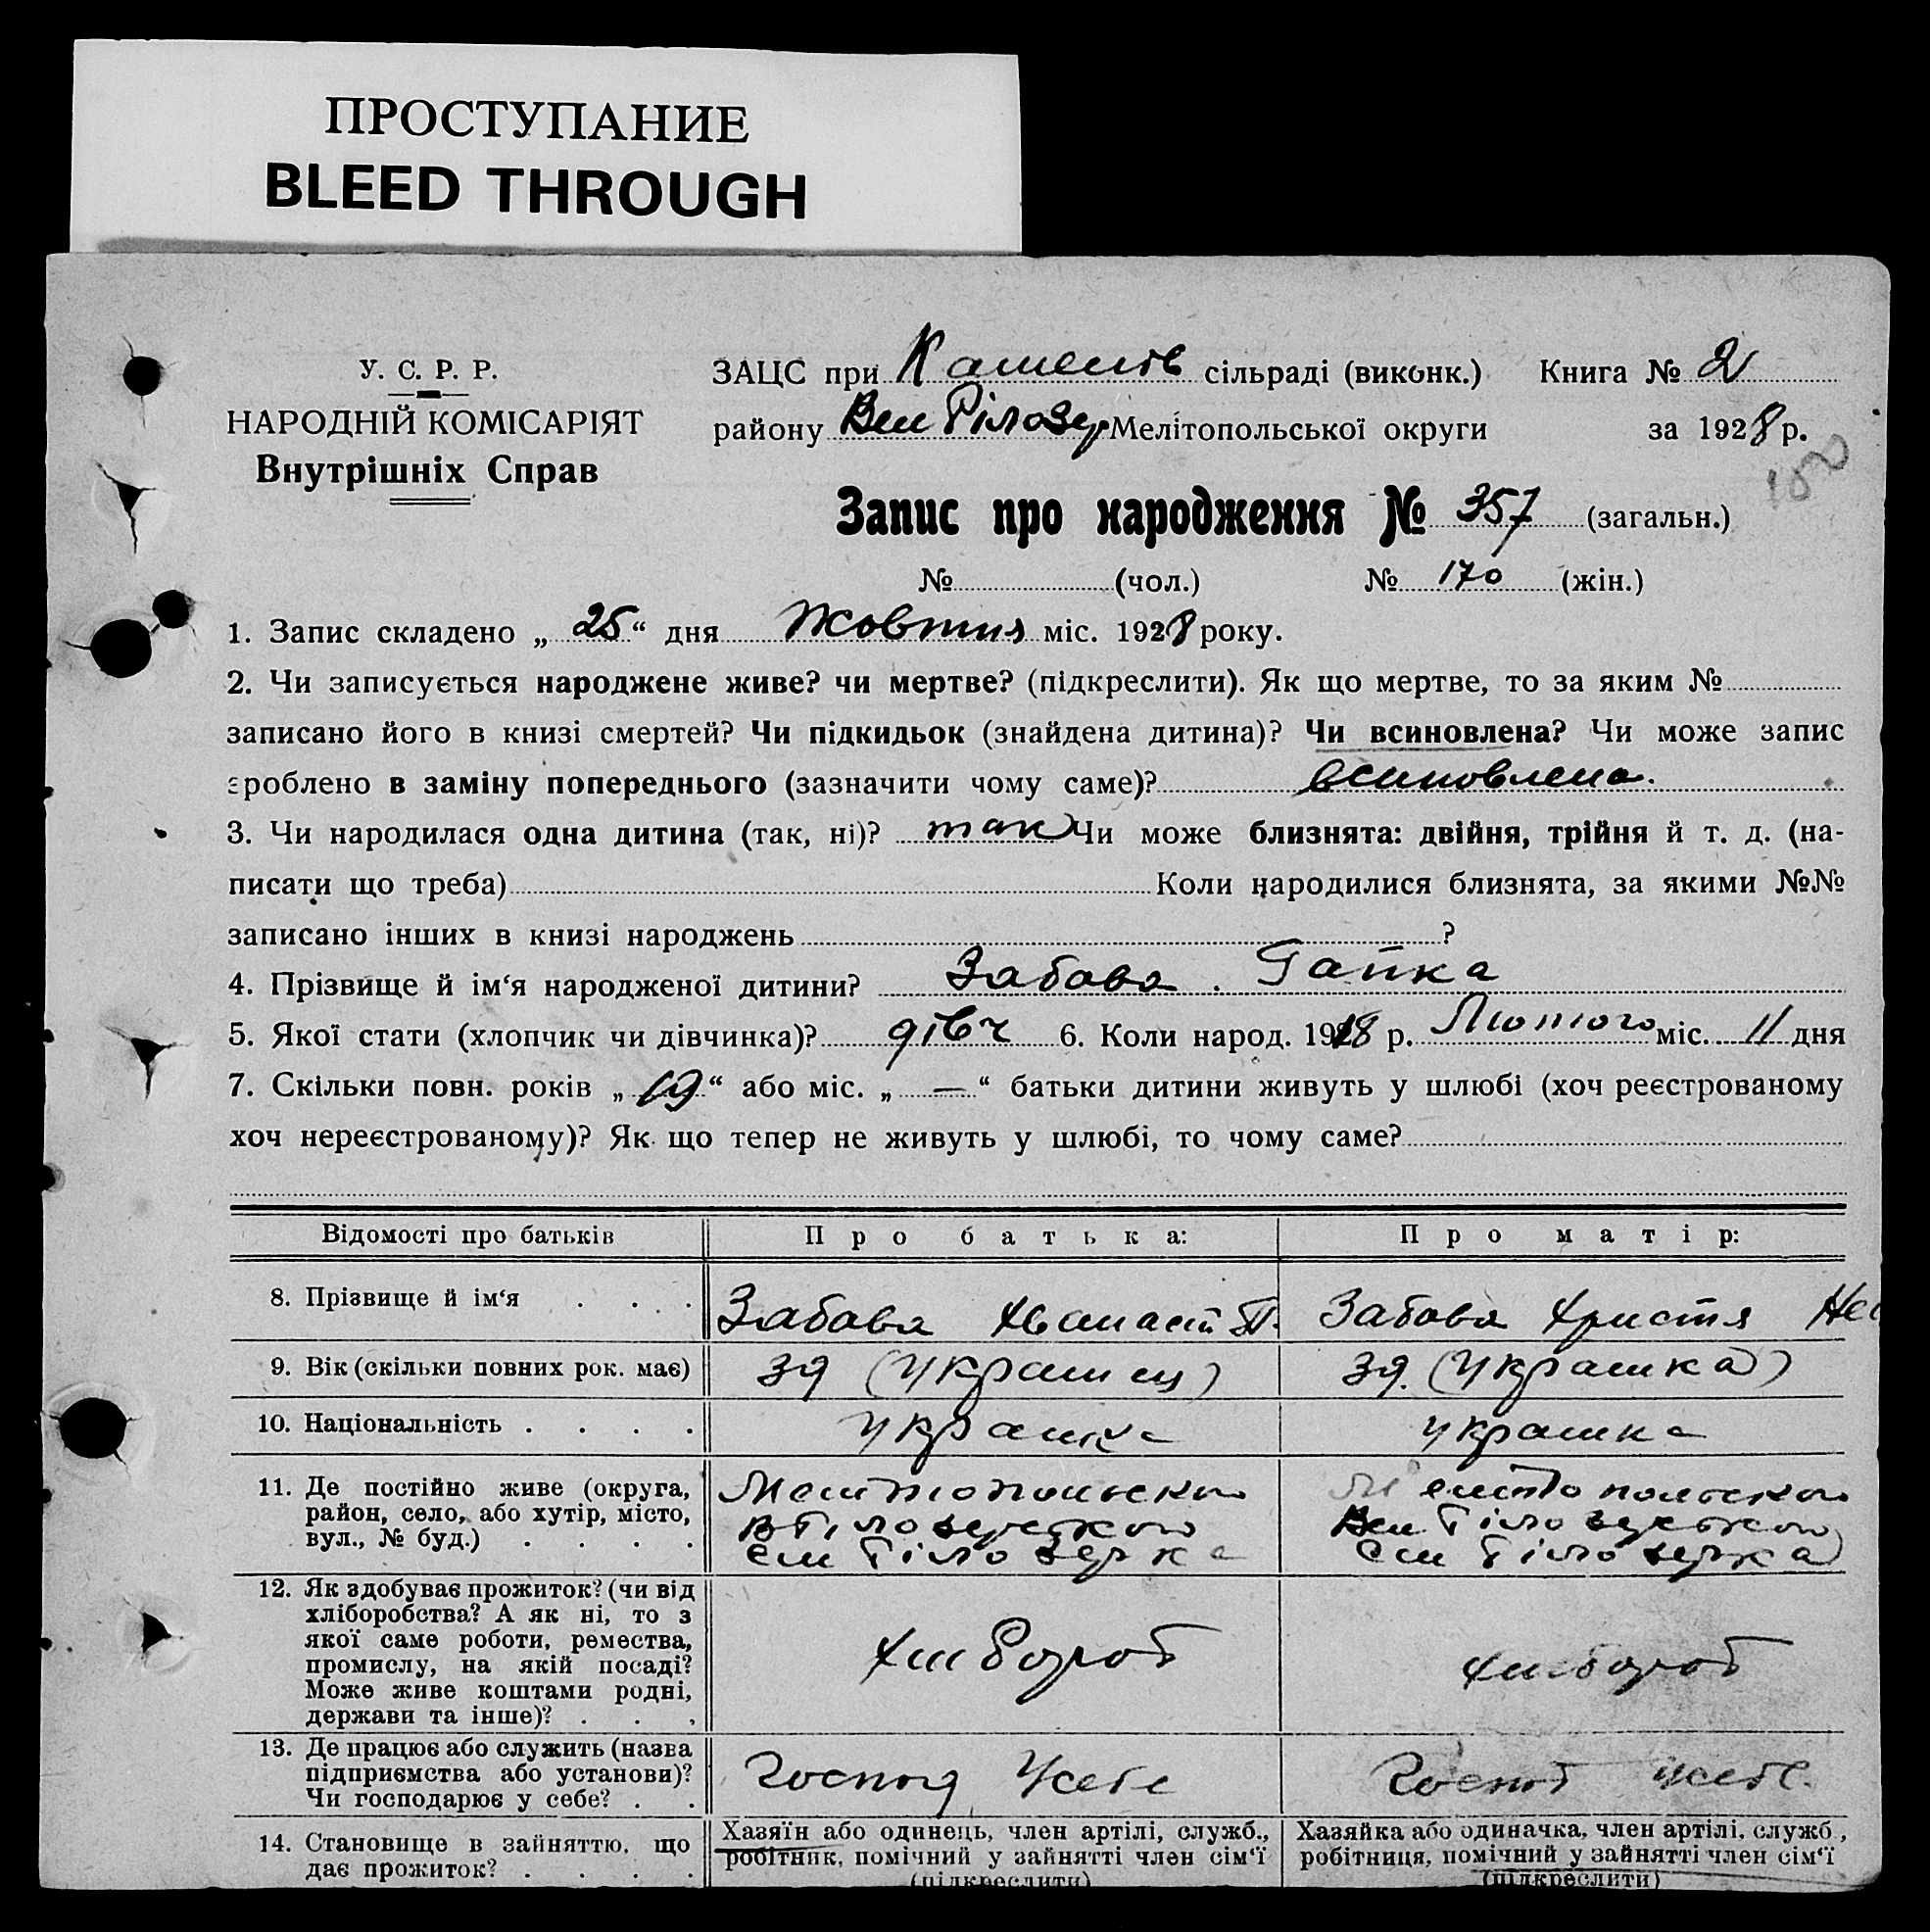 ПРОСТУПАНИЕ
BLEED THROUGH
У. С. Р. Р.
НАРОДНІЙ КОМІСАРІЯТ
Внутрішніх Справ
ЗАЦС при Каменсв сільраді (виконк.) Книга № 2
району Вел Білозер Мелітопольської округи за 1928 р.
150
Запис про народження № 357 (загальн.)
№ (чол.) № 170 (жін.)
1. Запис складено „ 25 “ дня Жовтня міс. 1928 року.
2. Чи записується народжене живе? чи мертве? (підкреслити). Як що мертве, то за яким №
записано його в книзі смертей? Чи підкидьок (знайдена дитина)? Чи всиновлена? Чи може запис
зроблено в заміну попереднього (зазначити чому саме)? всиновлена.
3. Чи народилася одна дитина (так, ні)? так Чи може близнята: двійня, трійня й т. д. (на-
писати що треба) Коли народилися близнята, за якими №№
записано інших в книзі народжень ?
4. Прізвище й ім‘я народженої дитини? Забава. Гапка
5. Якої стати (хлопчик чи дівчинка)? дівч 6. Коли народ. 1918 р. Лютого міс. 11 дня
7. Скільки повн. років „ 19 “ або міс. „ — “ батьки дитини живуть у шлюбі (хоч реєстрованому
хоч нереєстрованому)? Як що тепер не живуть у шлюбі, то чому саме?
Відомості про батьків Про батька: Про матір:
8. Прізвище й ім‘я . . . . Забава П. Забава Христя
9. Вік (скільки повних рок. має) 39 (Українец) 39. (Українка)
10. Національність . . . . українка українка
11. Де постійно живе (округа, Мелітопольской Мелітопольской
район, село, або хутір, місто, В Білозерской Вел Білозерской
вул., № буд.) . . . . сел Білозерка сел Білозерка
12. Як здобуває прожиток? (чи від
хліборобства? А як ні, то з
якої саме роботи, ремества, хлібороб хлібороб
промислу, на якій посаді?
Може живе коштами родні,
держави та інше)? . . .
13. Де працює або служить (назва
підприємства або установи)? Господ Усебе Господ усебе.
Чи господарює у себе? . .
14. Становище в зайняттю, що Хазяїн або одинець, член артілі, служб., Хазяйка або одиначка, член артілі, служб.,
дає прожиток? . . . . робітник, помічний у зайнятті член сім‘ї робітниця, помічний у зайнятті член сім‘ї
(підкреслити) (підкреслити)